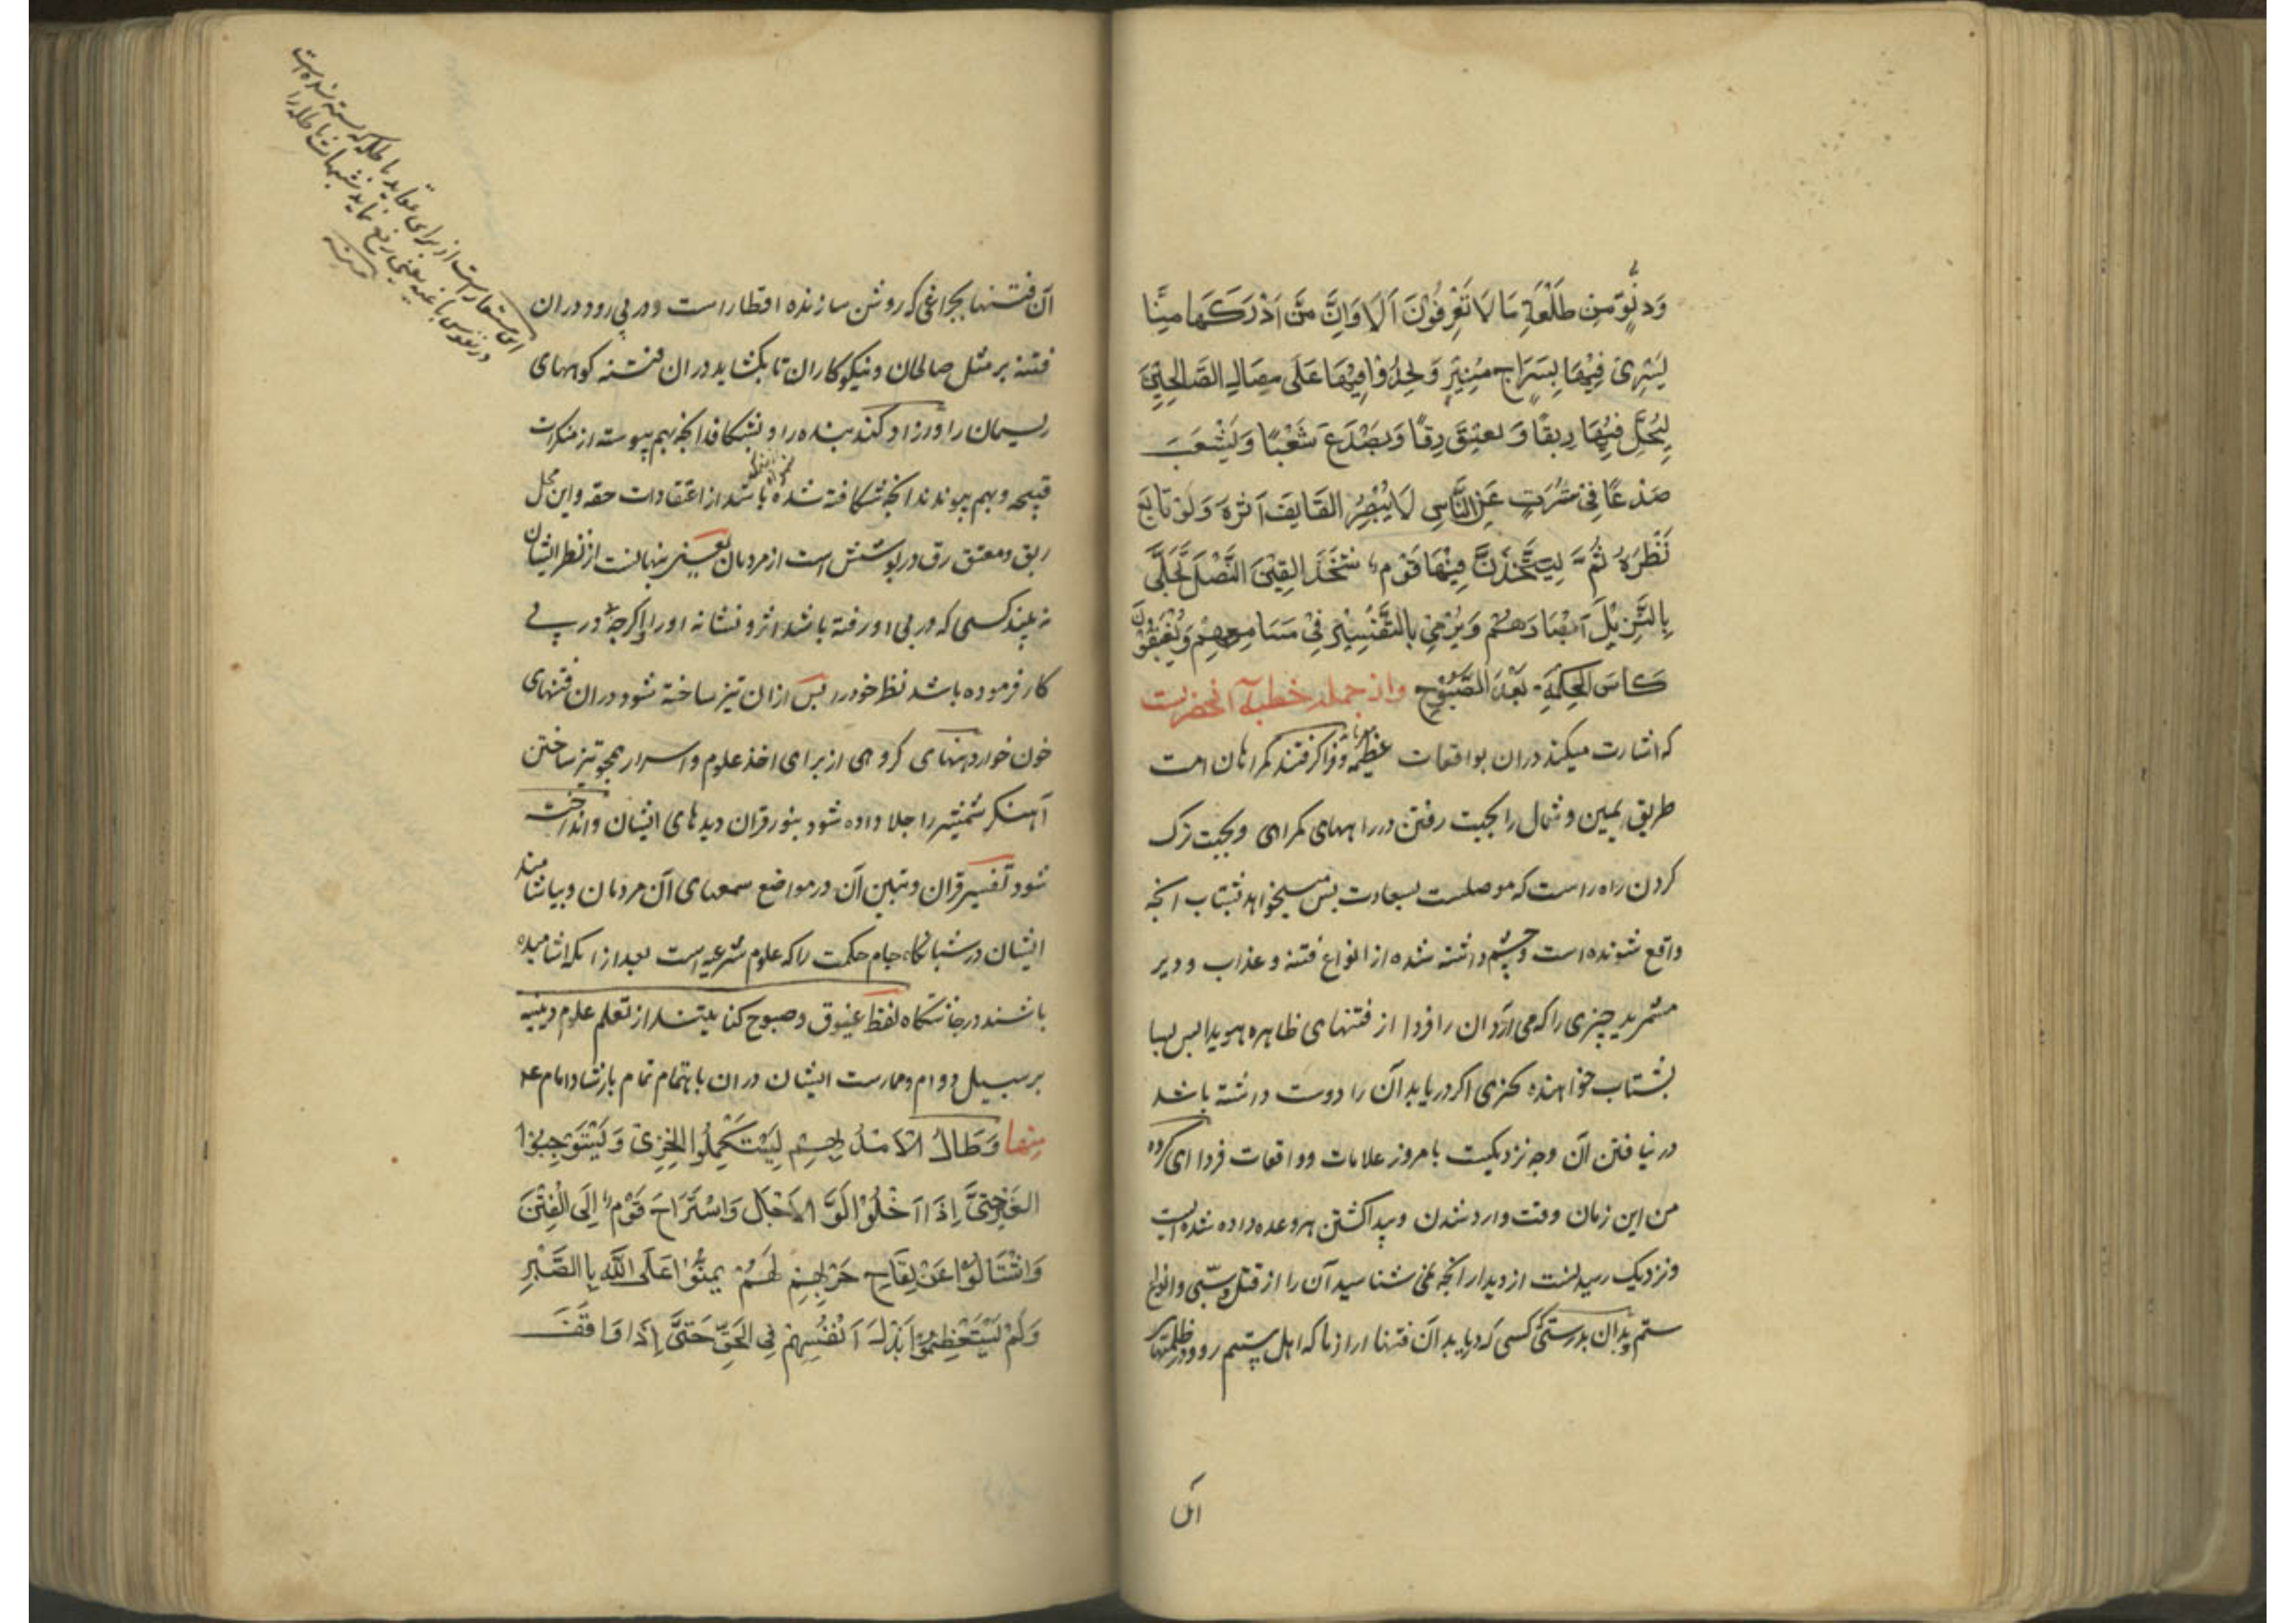 وَدُنُوٍّ مِنْ طَلْعَةِ مَا لَا تَعْرِفُونَ اَلَا وَاِنَّ مَنْ اَدْرَكَهَا مِنَّا
يَسْرِىْ فِيْهَا بِسِرَاجٍ مُنِيْرٍ وَيَحْذُوْا فِيْهَا عَلَى مِثَالِ الصَّالِحِيْنَ
لِيَحُلَّ فِيْهَا رِبْقًا وَيعتِقَ رِقًّا وَيَصْدَعَ شَعْبًا وَيَشْعَبَ
صَدْعًا فِىْ سُتْرَةٍ عَنِ النَّاسِ لَا يُبْصِرُ القَايِفُ اَثَرَهُ وَلَوْ تَابَعَ
نَظَرَهُ ثُمَّ لِيَشْحَذَنَّ فِيْهَا قَوْمٌ شَحْذَ القِيْنِ النَّصْلَ تُجْلَى
بِالتَّنْزِيْلِ اَبْصَارُهُمْ وَيُرْمَىْ بِالتَّفْسِيْرِ فِىْ مَسَامِعِهِمْ وَيُغْبَقُوْنَ
كَاسَ الحِكْمَةِ بَعْدَ الصَّبُوْحِ واز جمله خطبهٔ آنحضرتست
که اشارت میکند دران بواقعات عظیمه وفرا کرفتند کمراهان امت
طریق یمین و شمال را بجهت رفتن در راههای کمراهی و بجهت ترک
کردن راه راست که موصلست بسعادت پس میخواهد بشتاب انچه
واقع شونده است وچشم داشته شده از انواع فتنه و عذاب و دیر
مشمرید چیزی را که می آرد ان را فردا از فتنهای ظاهره هویدا پس بسا
بشتاب خواهنده چیزی اکر دریابد آن را دوست داشته باشد
در نیافتن آن وچه نزدیکست بامروز علامات و واقعات فردا ای کروه
من این زمان وقت وارد شدن و پیدا کشتن هر وعده داده شده است
ونزدیک رسیدنست از دیدار انچه نمی شناسید آن را از قتل و سبی وانواع
ستم وبدان بدرستی کسی که دریابد آن فتنها را از ما که اهل بیتیم رود در ظلمتهای
آن
آن فتنها بچراغی که روشن سازنده اقطار است ودر پی رود دران
فتنه بر مثل صالحان و نیکوکاران تا بکشاید دران فتنه کوههای
ریسمان را وازاد کند بنده را و بشکافد انچه بهم پیوسته از منکرات
قبیحه وبهم پیوندد انچه شکافته شده باشد از اعتقادات حقه واین محل
ربق ومعتق رق در پوشش است از مردمان یعنی پنهانست از نظر ایشان
نه بیند کسی که در پی او رفته باشد اثر و نشانه او را واکرچه در پی
کار فرموده باشد نظر خود را پس ازان تیز ساخته شود دران فتنهای
خون خوار ذهنهای کروهی از برای اخذ علوم و اسرار همچو تیز ساختن
آهنکر شمشیر را جلا داده شود بنور قران دیدهای ایشان وانداخته
شود تفسیر قران وتبیین آن در مواضع سمعهای آن مردمان وبیاشامند
ایشان در شبانکاه جام حکمت را که علوم شرعیه است بعد از انکه اشامیده
باشند در چاشتکاه لفظ غبوق وصبوح کنایتند از تعلم علوم دینیه
بر سبیل دوام وممارست ایشان دران باهتمام تمام بارشاد امام ع
مِنها وَطَالَ الاَمَدُ بِهِمْ لِيَسْتَكْمِلُوا الخِزْىَ وَيَسْتَوْجِبُوا
الغِيَرَ حَتَّى اِذَا اخْلَوْلَقَ الاَجَلُ وَاسْتَرَاحَ قَوْمٌ اِلَى الْفِتَنِ
وَاشْتَالُوْا عَنْ لِقَاحِ حَرْبِهِمْ لَمْ يَمُنُّوْا عَلَى اللّهِ بِالصَّبْرِ
وَلَمْ يَسْتَعْظِمُوْا بَذْلَ اَنْفُسِهِمْ فِى الحَقِّ حَتَّى اِذَا وَافَقَ
این استعار است از برای عقاید باطله که بسته شده است
در نفوس باغیه یعنی رفع نماید شبهات باطله را